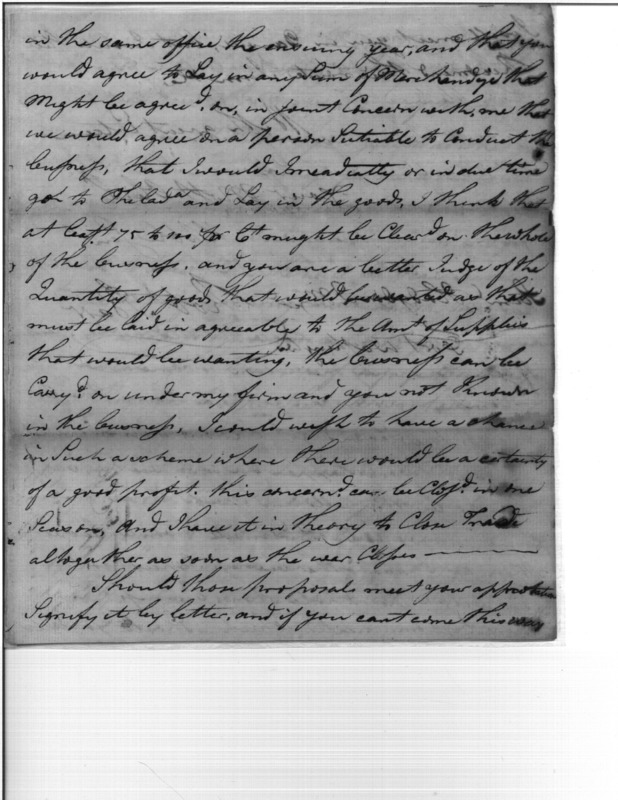 in the same office the ensuing year, and that you
would agree to Lay in any Sum of Merchandize that
Might be agree'd on, in joint Concern with me that
we would agree on a person Sutiable to Conduct the
bussness, that I would Imeadiatly or in due time
go to Philada and Lay in the goods, I think that
at least 75 to 100 pr Ct mught be Clear'd on the whole
of the buisness, and you are a better Judge of the
Quantity of goods that would be wanted as that
must be laid in agreeable to the Amt of Supplies
that would be wanting, the buisness can be
Carry'd on under my firm and you not Known
in the buisness, I would wish to have a chance
in Such a scheme where there would be a certainty
of a good profit. this concern'd can be Clos'd in one
Season, And I have it in theory to Close Trade
altogeather as soon as the war Closes
Should those proposals meet your approbation
Signify it by letter, and if you cant come this way